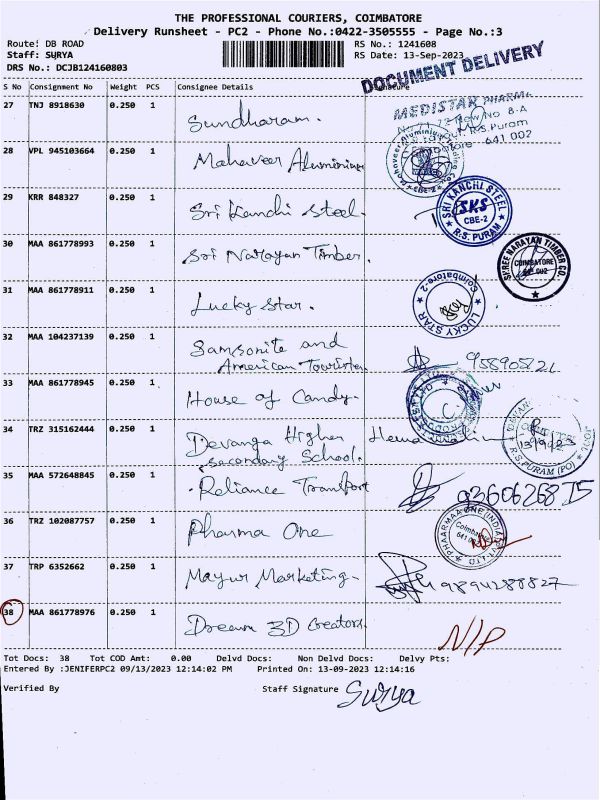 THE PROFESSIONAL COURIERS, COIMBATORE
Delivery Runsheet - PC2 - Phone No.:0422-3505555 - Page No.:3
Route: DB ROAD
Staff: SURYA
DRS No.: DCJB124160803
RS No.: 1241608
RS Date: 13-Sep-2023
DOCUMENT DELIVERY
S No Consignment No Weight PCS Consignee Details
27 TNJ 8918630 0.250 1 Sundharam.
MEDISTAR PHARMA
R.S.Puram
641 002
28 VPL 945103664 0.250 1 Mahaveer Aluminium
29 KRR 848327 0.250 1 Sri Kanchi Steel.
SRI KANCHI STEEL
SKS
CBE-2
R.S. PURAM
30 MAA 861778993 0.250 1 Sri Narayan Timber.
SHREE NARAYAN TIMBER CO.
COIMBATORE
31 MAA 861778911 0.250 1 Lucky Star.
Coimbatore-2
LUCKY STAR
32 MAA 104237139 0.250 1 Samsonite and
American Tourister
33 MAA 861778945 0.250 1 House of Candy.
34 TRZ 315162444 0.250 1 Devanga Higher
Secondary School.
13/9/23
R.S.PURAM (PO)
35 MAA 572648845 0.250 1 Reliance Transport
36 TRZ 102087757 0.250 1 Pharma One
37 TRP 6352662 0.250 1 Mayur Marketing. 9894288827
38 MAA 861778976 0.250 1 Dream 3D Creators.
N/P
Tot Docs: 38 Tot COD Amt: 0.00 Delvd Docs: Non Delvd Docs: Delvy Pts:
Entered By :JENIFERPC2 09/13/2023 12:14:02 PM Printed On: 13-09-2023 12:14:16
Verified By Staff Signature Surya